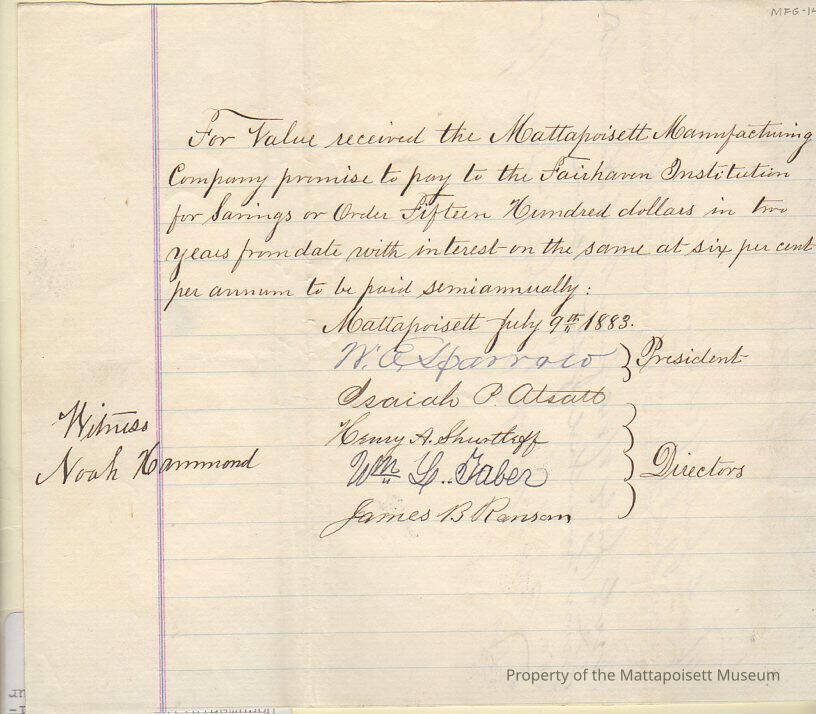 MFG-14
For Value received the Mattapoisett Manufacturing
Company promise to pay to the Fairhaven Institution
for Savings or Order Fifteen Hundred dollars in two
years from date with interest on the same at six per cent
per annum to be paid semiannually:
Mattapoisett July 9th 1883.
W. E. Sparrow } President
Isaiah P. Atsatt
Witness
Henry A. Shurtleff
Noah Hammond
Wm L. Faber } Directors
James B Ransom
Property of the Mattapoisett Museum